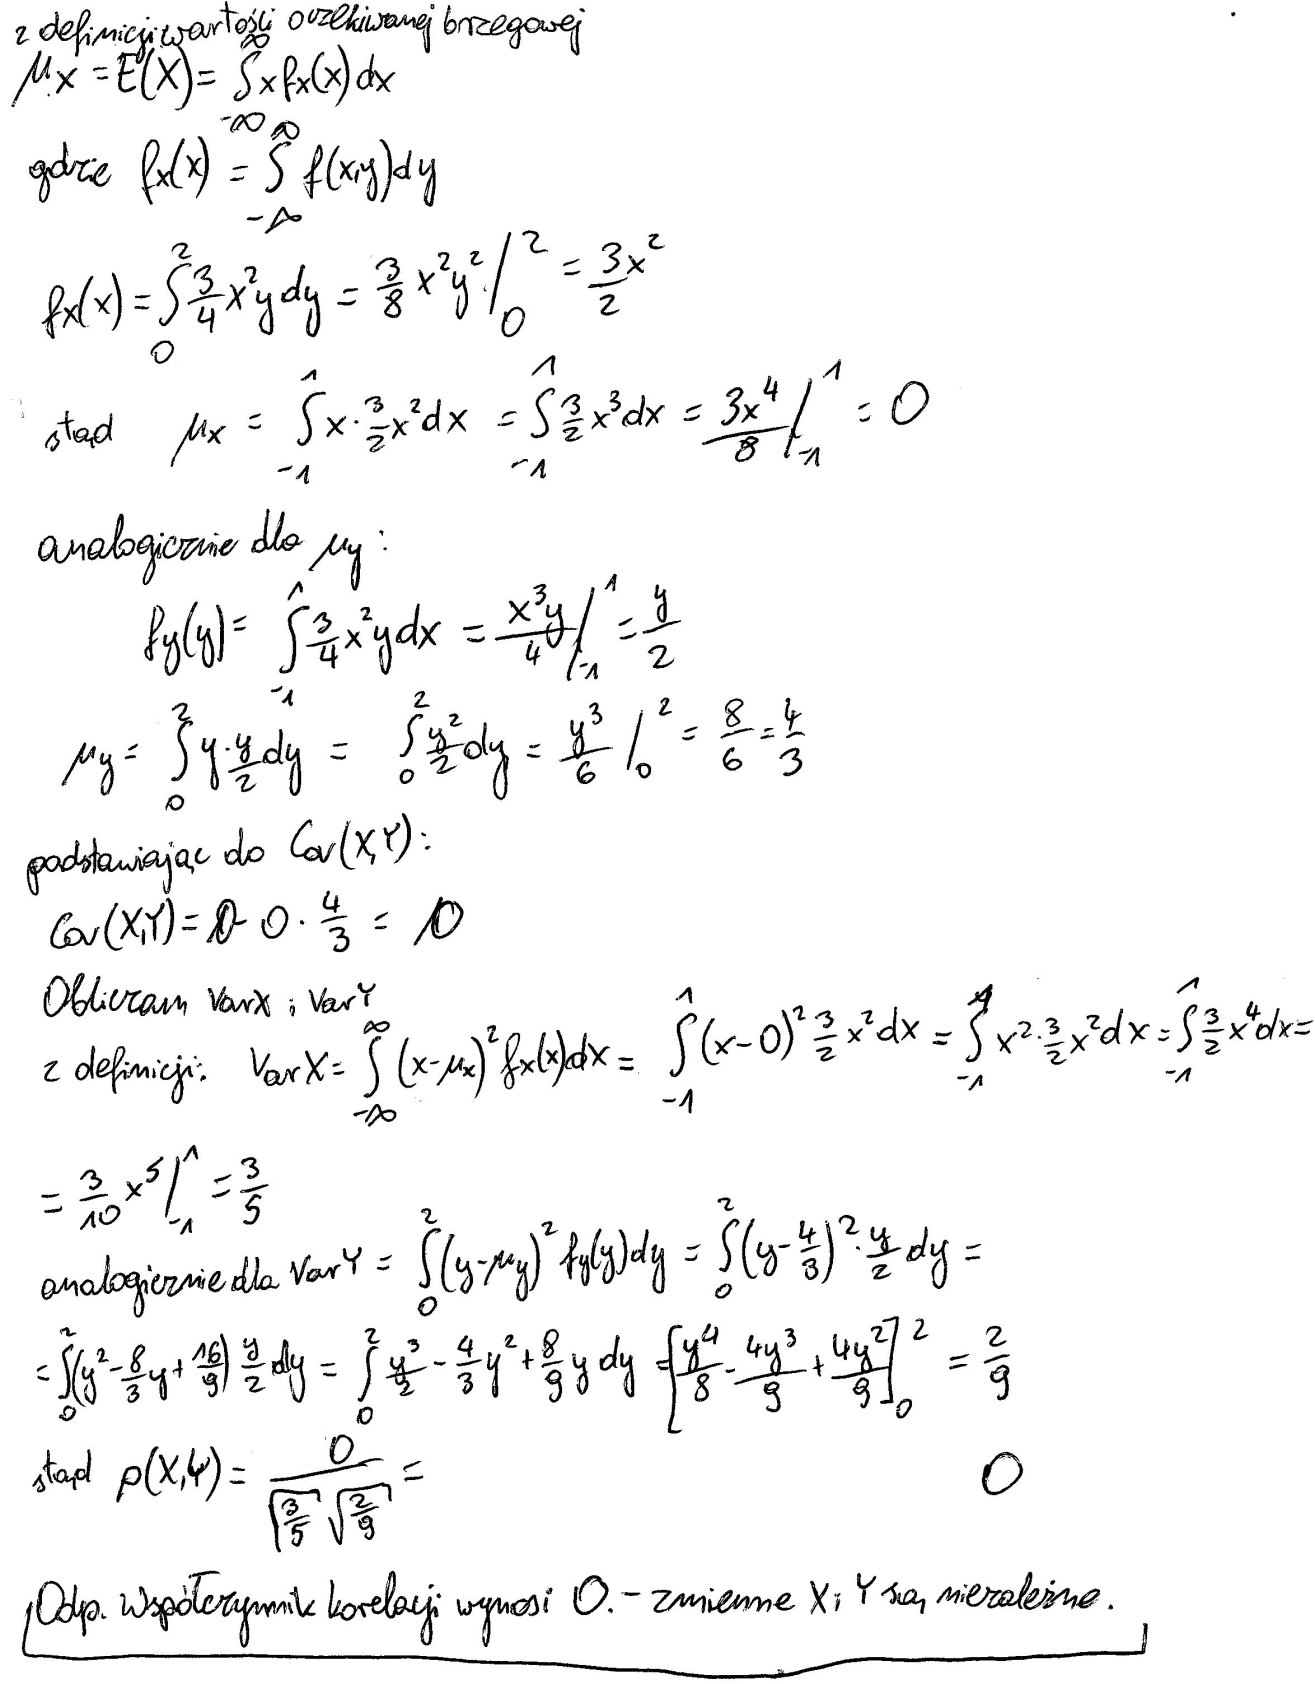 z definicji wartości oczekiwanej brzegowej
μx = E(X) = ∫_{-∞}^{∞} x fx(x) dx
gdzie fx(x) = ∫_{-∞}^{∞} f(x,y) dy
fx(x) = ∫_0^2 3/4 x²y dy = 3/8 x²y² |_0^2 = 3x²/2
stąd μx = ∫_{-1}^1 x · 3/2 x² dx = ∫_{-1}^1 3/2 x³ dx = 3x⁴/8 |_{-1}^1 = 0
analogicznie dla μy:
fy(y) = ∫_{-1}^1 3/4 x²y dx = x³y/4 |_{-1}^1 = y/2
μy = ∫_0^2 y · y/2 dy = ∫_0^2 y²/2 dy = y³/6 |_0^2 = 8/6 = 4/3
podstawiając do Cov(X,Y):
Cov(X,Y) = 0 - 0 · 4/3 = 0
Obliczam VarX i VarY
z definicji: VarX = ∫_{-∞}^{∞} (x-μx)² fx(x) dx = ∫_{-1}^1 (x-0)² 3/2 x² dx = ∫_{-1}^1 x² · 3/2 x² dx = ∫_{-1}^1 3/2 x⁴ dx =
= 3/10 x⁵ |_{-1}^1 = 3/5
analogicznie dla VarY = ∫_0^2 (y-μy)² fy(y) dy = ∫_0^2 (y - 4/3)² · y/2 dy =
= ∫_0^2 (y² - 8/3 y + 16/9) y/2 dy = ∫_0^2 y³/2 - 4/3 y² + 8/9 y dy = [y⁴/8 - 4y³/9 + 4y²/9]_0^2 = 2/9
stąd ρ(X,Y) = 0/(√(3/5) √(2/9)) = 0
Odp. Współczynnik korelacji wynosi 0. - zmienne X i Y są niezależne.